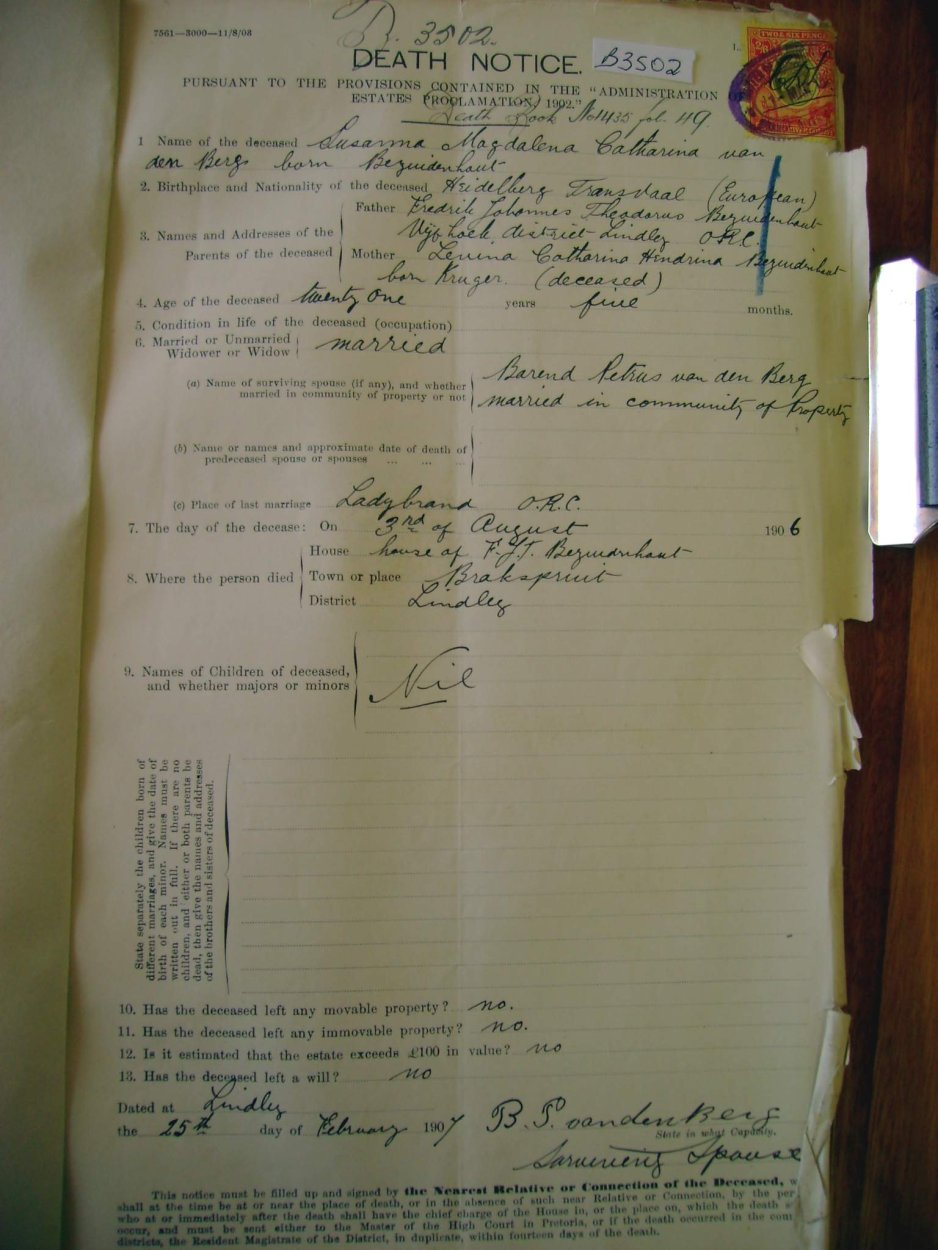 7561—3000—11/8/03
B. 3502.
DEATH NOTICE.
B3502
TWO & SIX PENCE
PURSUANT TO THE PROVISIONS CONTAINED IN THE "ADMINISTRATION OF
ESTATES PROCLAMATION, 1902."
Death Book No 1435 fol. 49.
1 Name of the deceased Susanna Magdalena Catharina van
den Berg born Bezuidenhout
2. Birthplace and Nationality of the deceased Heidelberg Transvaal (European)
3. Names and Addresses of the Parents of the deceased
Father Fredrik Johannes Theodorus Bezuidenhout
district Lindley O.R.C.
Mother Levina Catharina Hendrina Bezuidenhout
born Kruger. (deceased)
4. Age of the deceased twenty one years five months.
5. Condition in life of the deceased (occupation)
6. Married or Unmarried
Widower or Widow
married
(a) Name of surviving spouse (if any), and whether
married in community of property or not
Barend Petrus van den Berg
married in community of Property
(b) Name or names and approximate date of death of
predeceased spouse or spouses ... ... ...
(c) Place of last marriage Ladybrand O.R.C.
7. The day of the decease: On 3rd of August 1906
8. Where the person died
House house of F.J.T. Bezuidenhout
Town or place Brakspruit
District Lindley
9. Names of Children of deceased,
and whether majors or minors
Nil
State separately the children born of
different marriages, and give the date of
birth of each minor. Names must be
written out in full. If there are no
children, and either or both parents be
dead, then give the names and addresses
of the brothers and sisters of deceased.
10. Has the deceased left any movable property? no.
11. Has the deceased left any immovable property? no.
12. Is it estimated that the estate exceeds £100 in value? no
13. Has the deceased left a will? no
Dated at Lindley
the 25th day of February 1907 B. P. van den Berg
State in what Capacity.
Surviveing Spouse
This notice must be filled up and signed by the Nearest Relative or Connection of the Deceased, w
shall at the time be at or near the place of death, or in the absence of such near Relative or Connection, by the per
who at or immediately after the death shall have the chief charge of the House in, or the place on, which the death
occur, and must be sent either to the Master of the High Court in Pretoria, or if the death occurred in the coun
districts, the Resident Magistrate of the District, in duplicate, within fourteen days of the death.